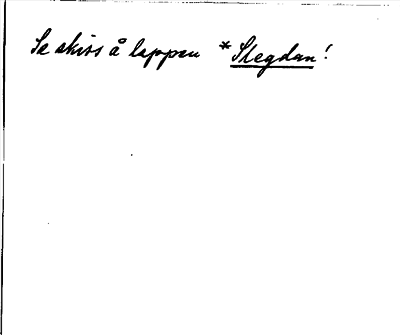 Se skiss å lappen *Stegdan!